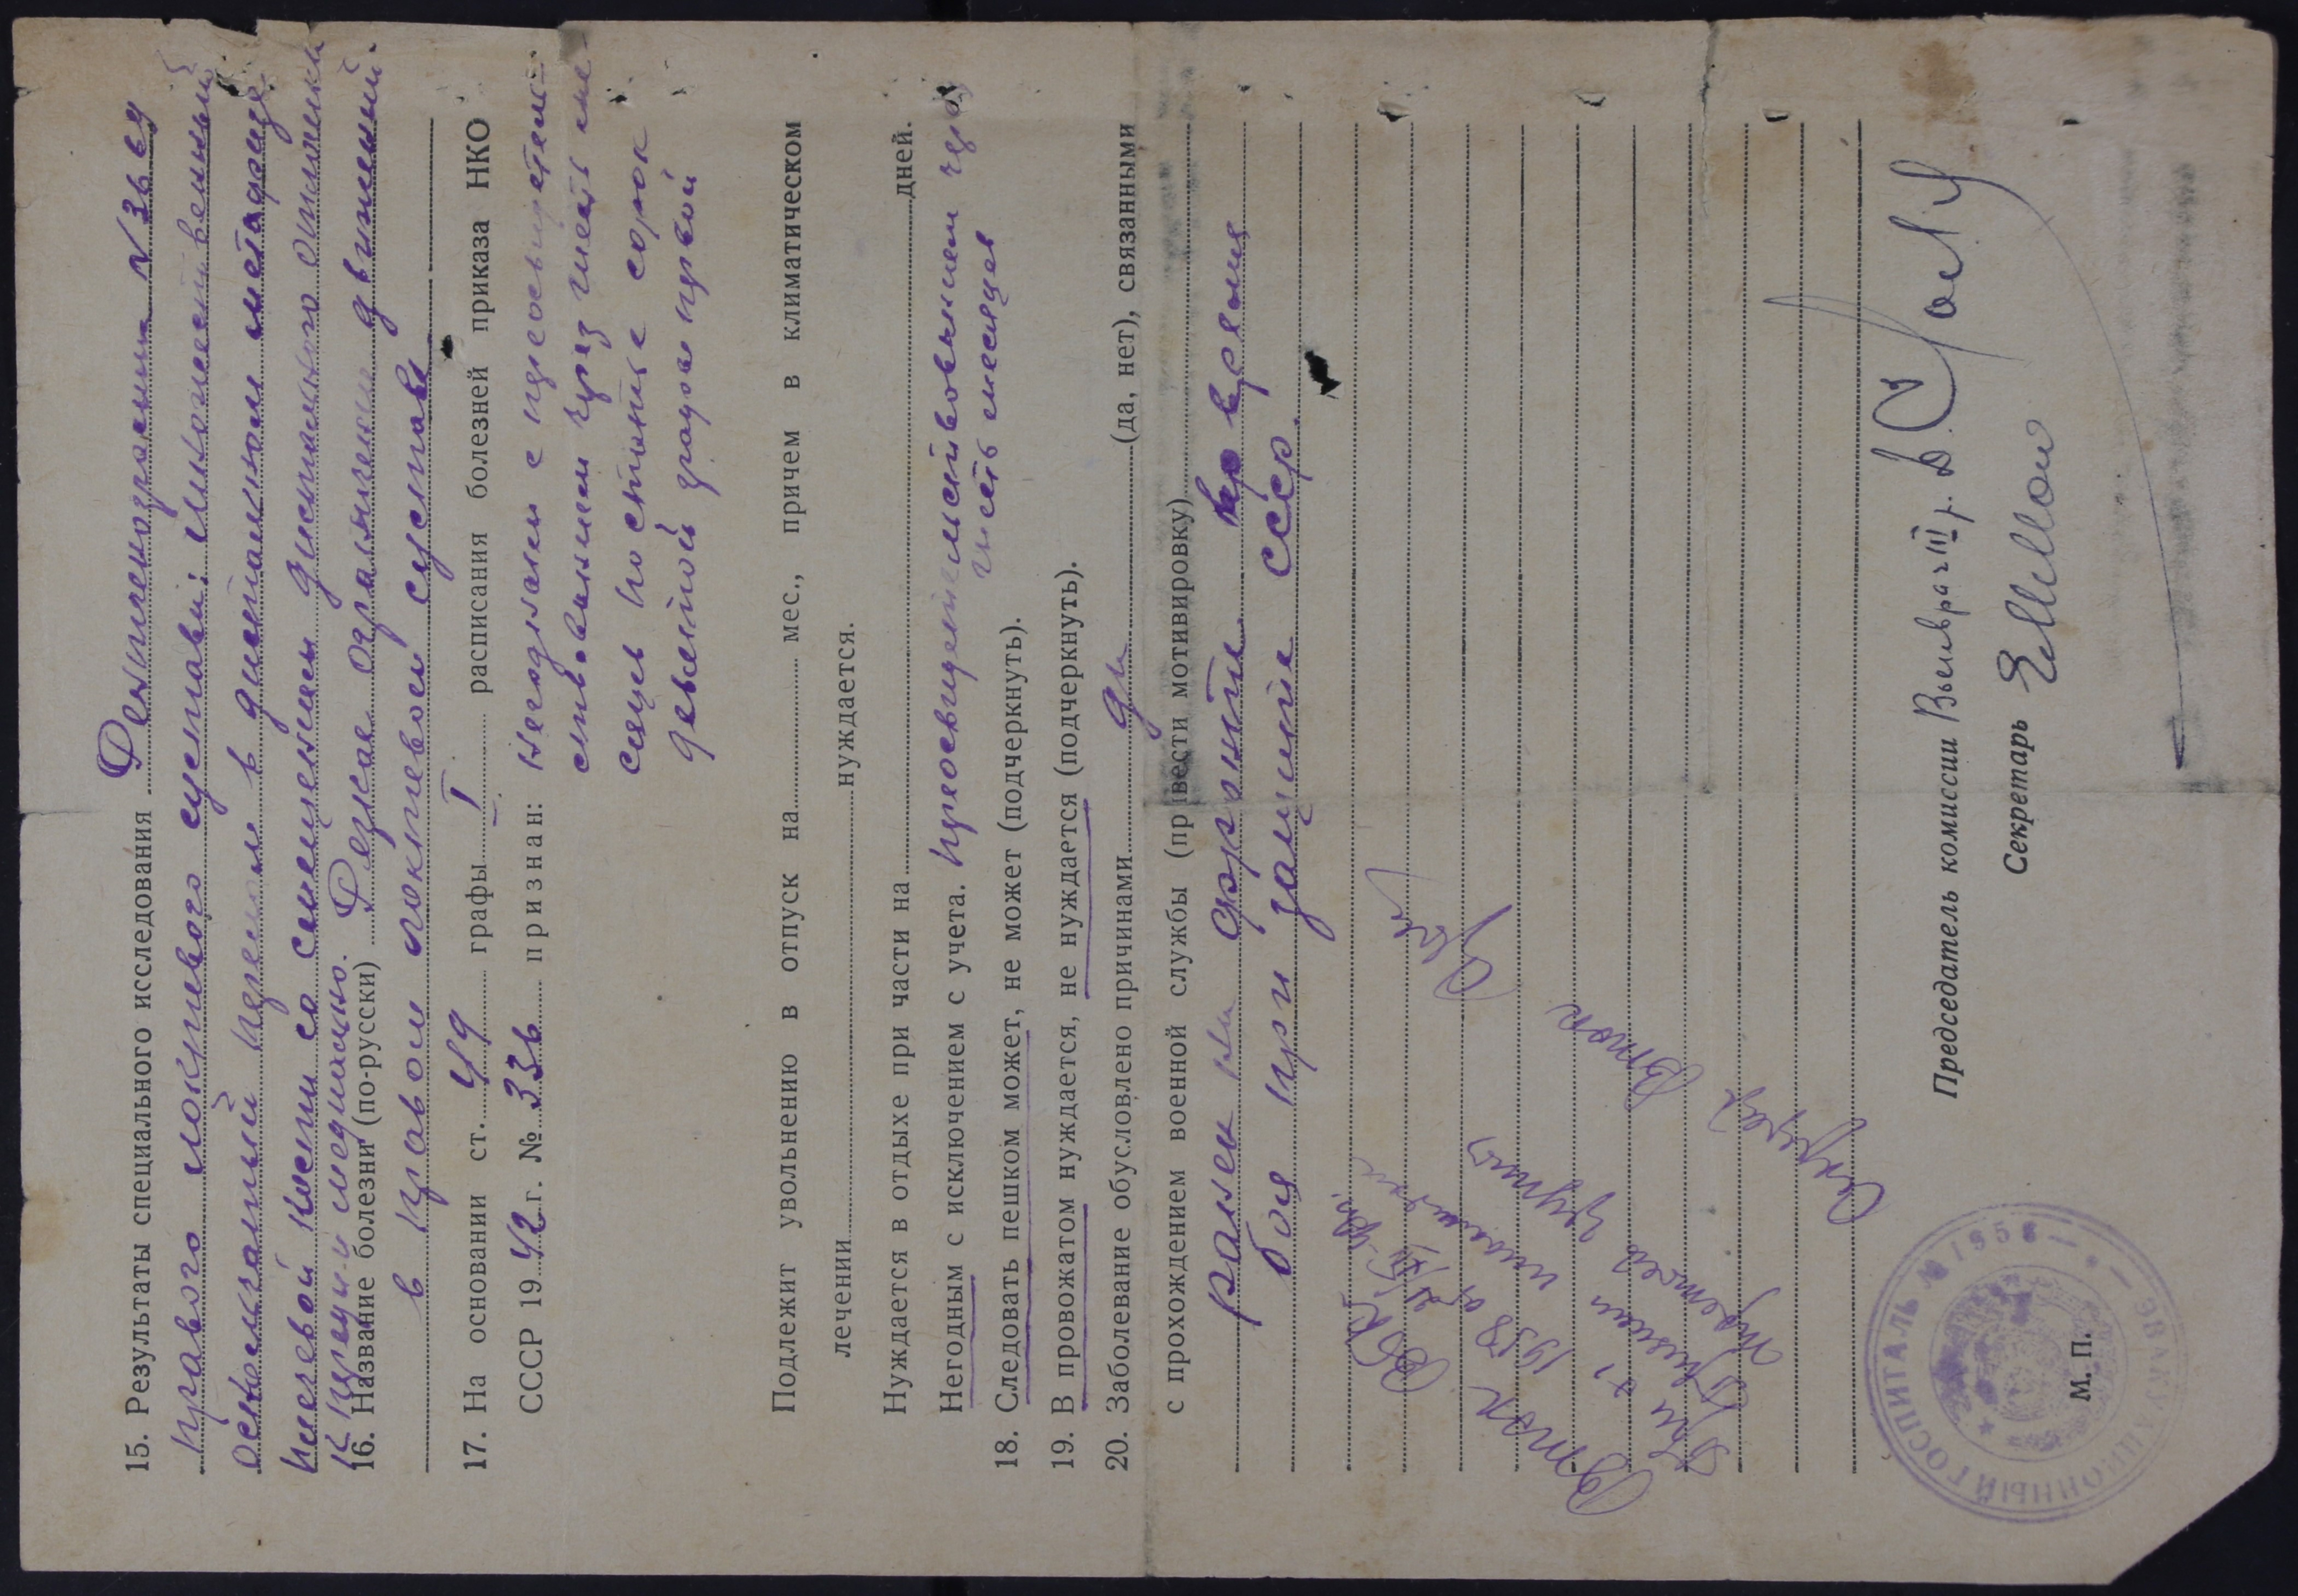 15. Результаты специального исследования Рентгенограмма N 3669
правого локтевого сустава: множественный
оскольчатый перелом в дистальном метадиафизе
плечевой кости со смещением дистального отломка
кпереди и медиально.
16. Название болезни (по-русски) Резкое ограничение движений
в правом локтевом суставе
17. На основании ст. 49 графы I расписания болезней приказа НКО
СССР 1942 г. № 336 признан: Негодным с переосвидетель-
ствованием через шесть ме-
сяцев по статье сорок
девятой графы первой
Подлежит увольнению в отпуск на мес., причем в климатическом
лечении нуждается.
Нуждается в отдыхе при части на дней.
Негодным с исключением с учета. переосвидетельствованием через
шесть месяцев
18. Следовать пешком может, не может (подчеркнуть).
19. В провожатом нуждается, не нуждается (подчеркнуть).
20. Заболевание обусловлено причинами да (да, нет), связанными
с прохождением военной службы (привести мотивировку)
ранен на фронте во время
боя при защите СССР.
Втэк
1958
группы
Втэк
Председатель комиссии Военврач III р.
Секретарь
М. П.
ЭВАКУАЦИОННЫЙ ГОСПИТАЛЬ № 1958